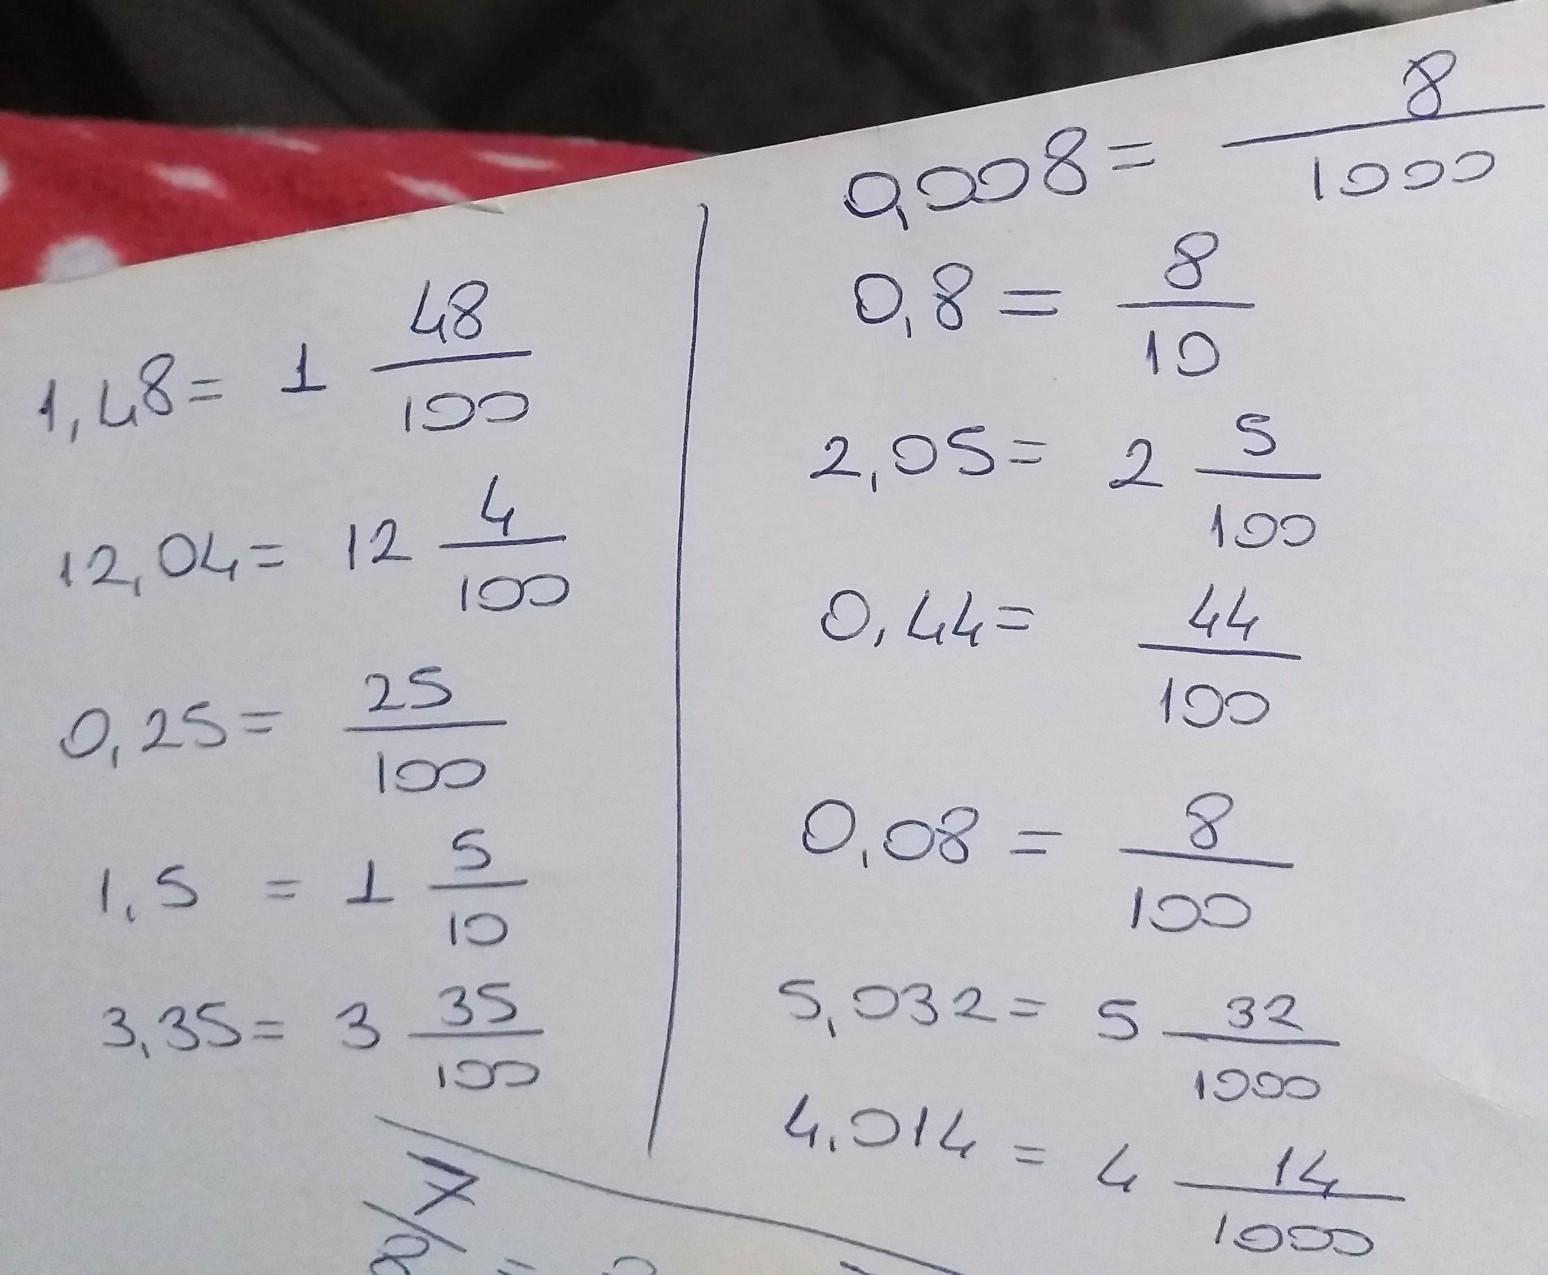 1,48 = 1 48/100
12,04 = 12 4/100
0,25 = 25/100
1,5 = 1 5/10
3,35 = 3 35/100
0,008 = 8/1000
0,8 = 8/10
2,05 = 2 5/100
0,44 = 44/100
0,08 = 8/100
5,032 = 5 32/1000
4,014 = 4 14/1000